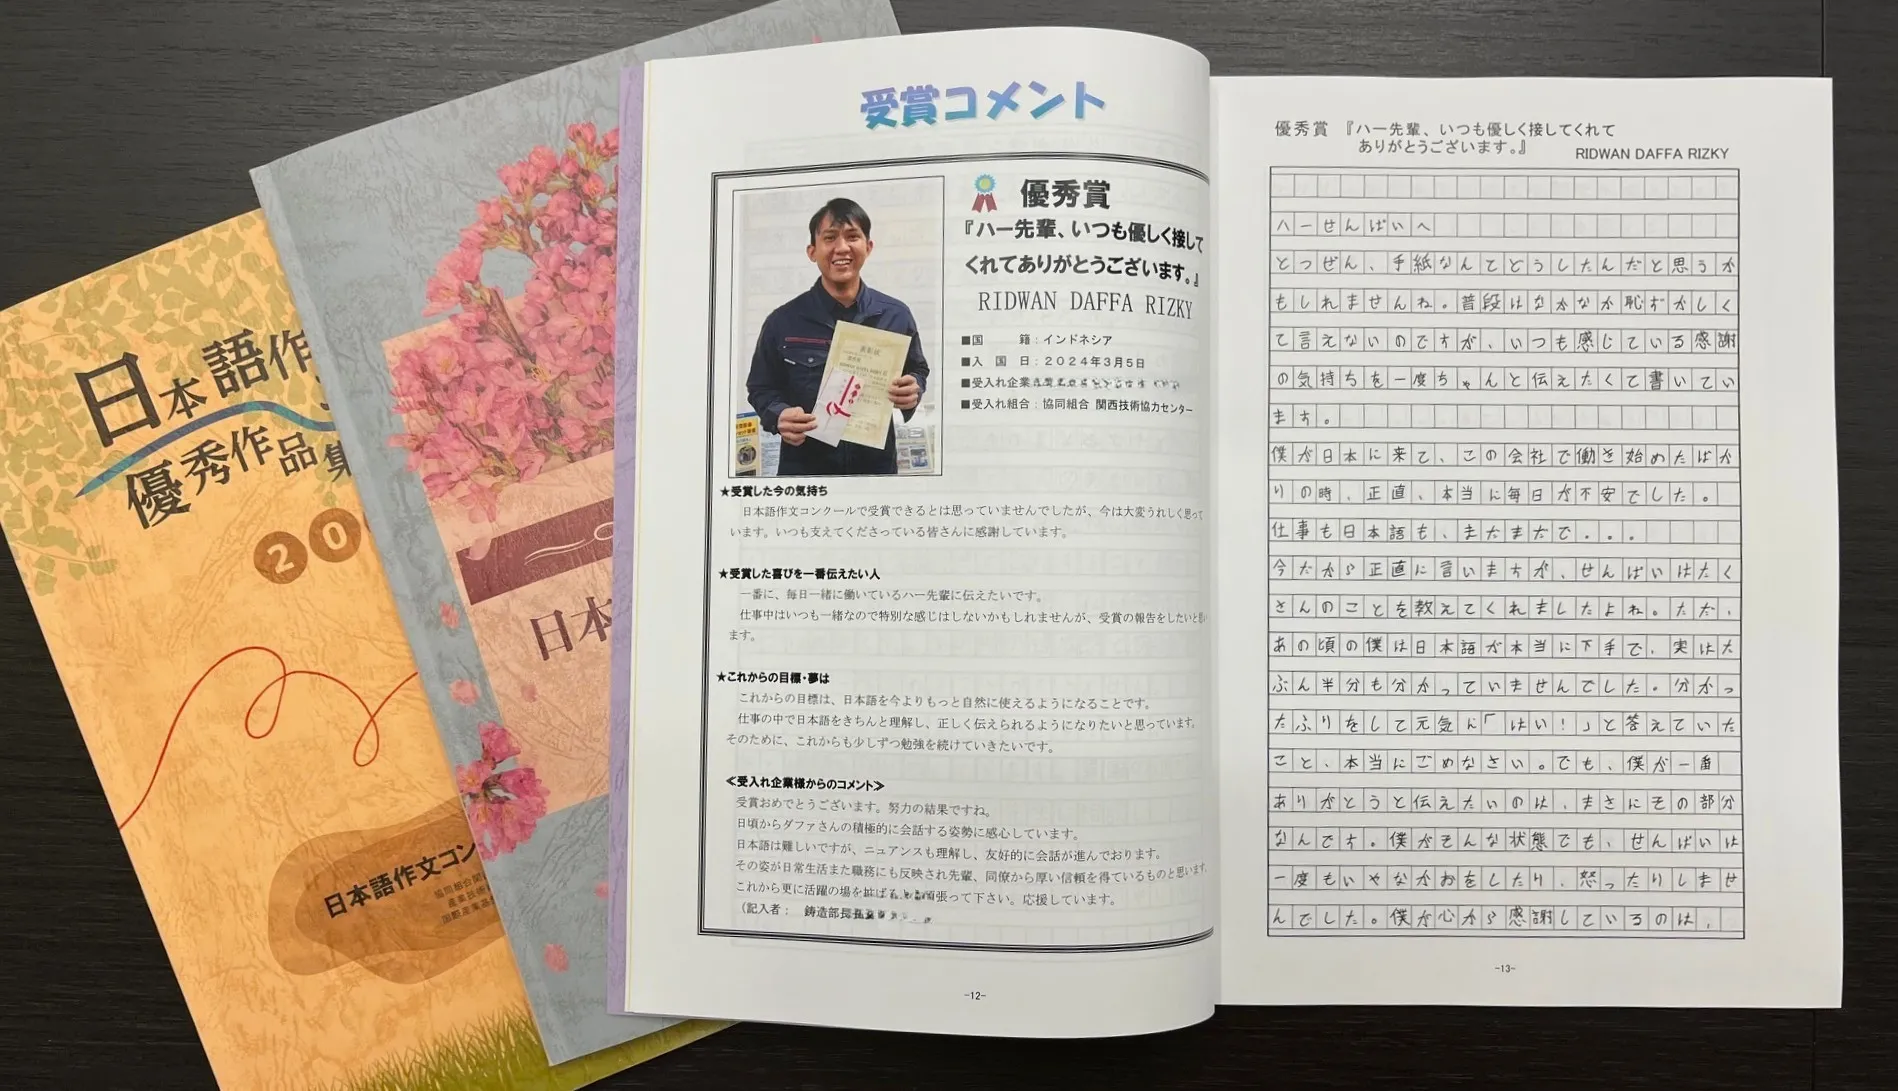 日本語作
優秀作品集
20
日本語作文コン
日本
受賞コメント
優秀賞
『ハー先輩、いつも優しく接して
くれてありがとうございます。』
RIDWAN DAFFA RIZKY
■国　　籍：インドネシア
■入　国　日：２０２４年３月５日
■受入れ企業
■受入れ組合：協同組合 関西技術協力センター
表彰状
★受賞した今の気持ち
日本語作文コンクールで受賞できるとは思っていませんでしたが、今は大変うれしく思って
います。いつも支えてくださっている皆さんに感謝しています。
★受賞した喜びを一番伝えたい人
一番に、毎日一緒に働いているハー先輩に伝えたいです。
仕事中はいつも一緒なので特別な感じはしないかもしれませんが、受賞の報告をしたいと思い
ます。
★これからの目標・夢は
これからの目標は、日本語を今よりもっと自然に使えるようになることです。
仕事の中で日本語をきちんと理解し、正しく伝えられるようになりたいと思っています。
そのために、これからも少しずつ勉強を続けていきたいです。
≪受入れ企業様からのコメント≫
受賞おめでとうございます。努力の結果ですね。
日頃からダファさんの積極的に会話する姿勢に感心しています。
日本語は難しいですが、ニュアンスも理解し、友好的に会話が進んでおります。
その姿が日常生活また職務にも反映され先輩、同僚から厚い信頼を得ているものと思います。
これから更に活躍の場を拡げ 張って下さい。応援しています。
（記入者： 鋳造部長
-12-
優秀賞 『ハー先輩、いつも優しく接してくれて
ありがとうございます。』 RIDWAN DAFFA RIZKY
ハーせんぱいへ
とつぜん、手紙なんてどうしたんだと思うか
もしれませんね。普段はなかなか恥ずかしく
て言えないのですが、いつも感じている感謝
の気持ちを一度ちゃんと伝えたくて書いてい
ます。
僕が日本に来て、この会社で働き始めたばか
りの時、正直、本当に毎日が不安でした。
仕事も日本語も、まだまだで...
今だから正直に言いますが、せんぱいはたく
さんのことを教えてくれましたよね。ただ、
あの頃の僕は日本語が本当に下手で、実はた
ぶん半分も分かっていませんでした。分かっ
たふりをして元気に「はい！」と答えていた
こと、本当にごめなさい。でも、僕が一番
ありがとうと伝えたいのは、まさにその部分
なんです。僕がそんな状態でも、せんぱいは
一度もいやなかおをしたり、怒ったりしませ
んでした。僕が心から感謝しているのは、
-13-